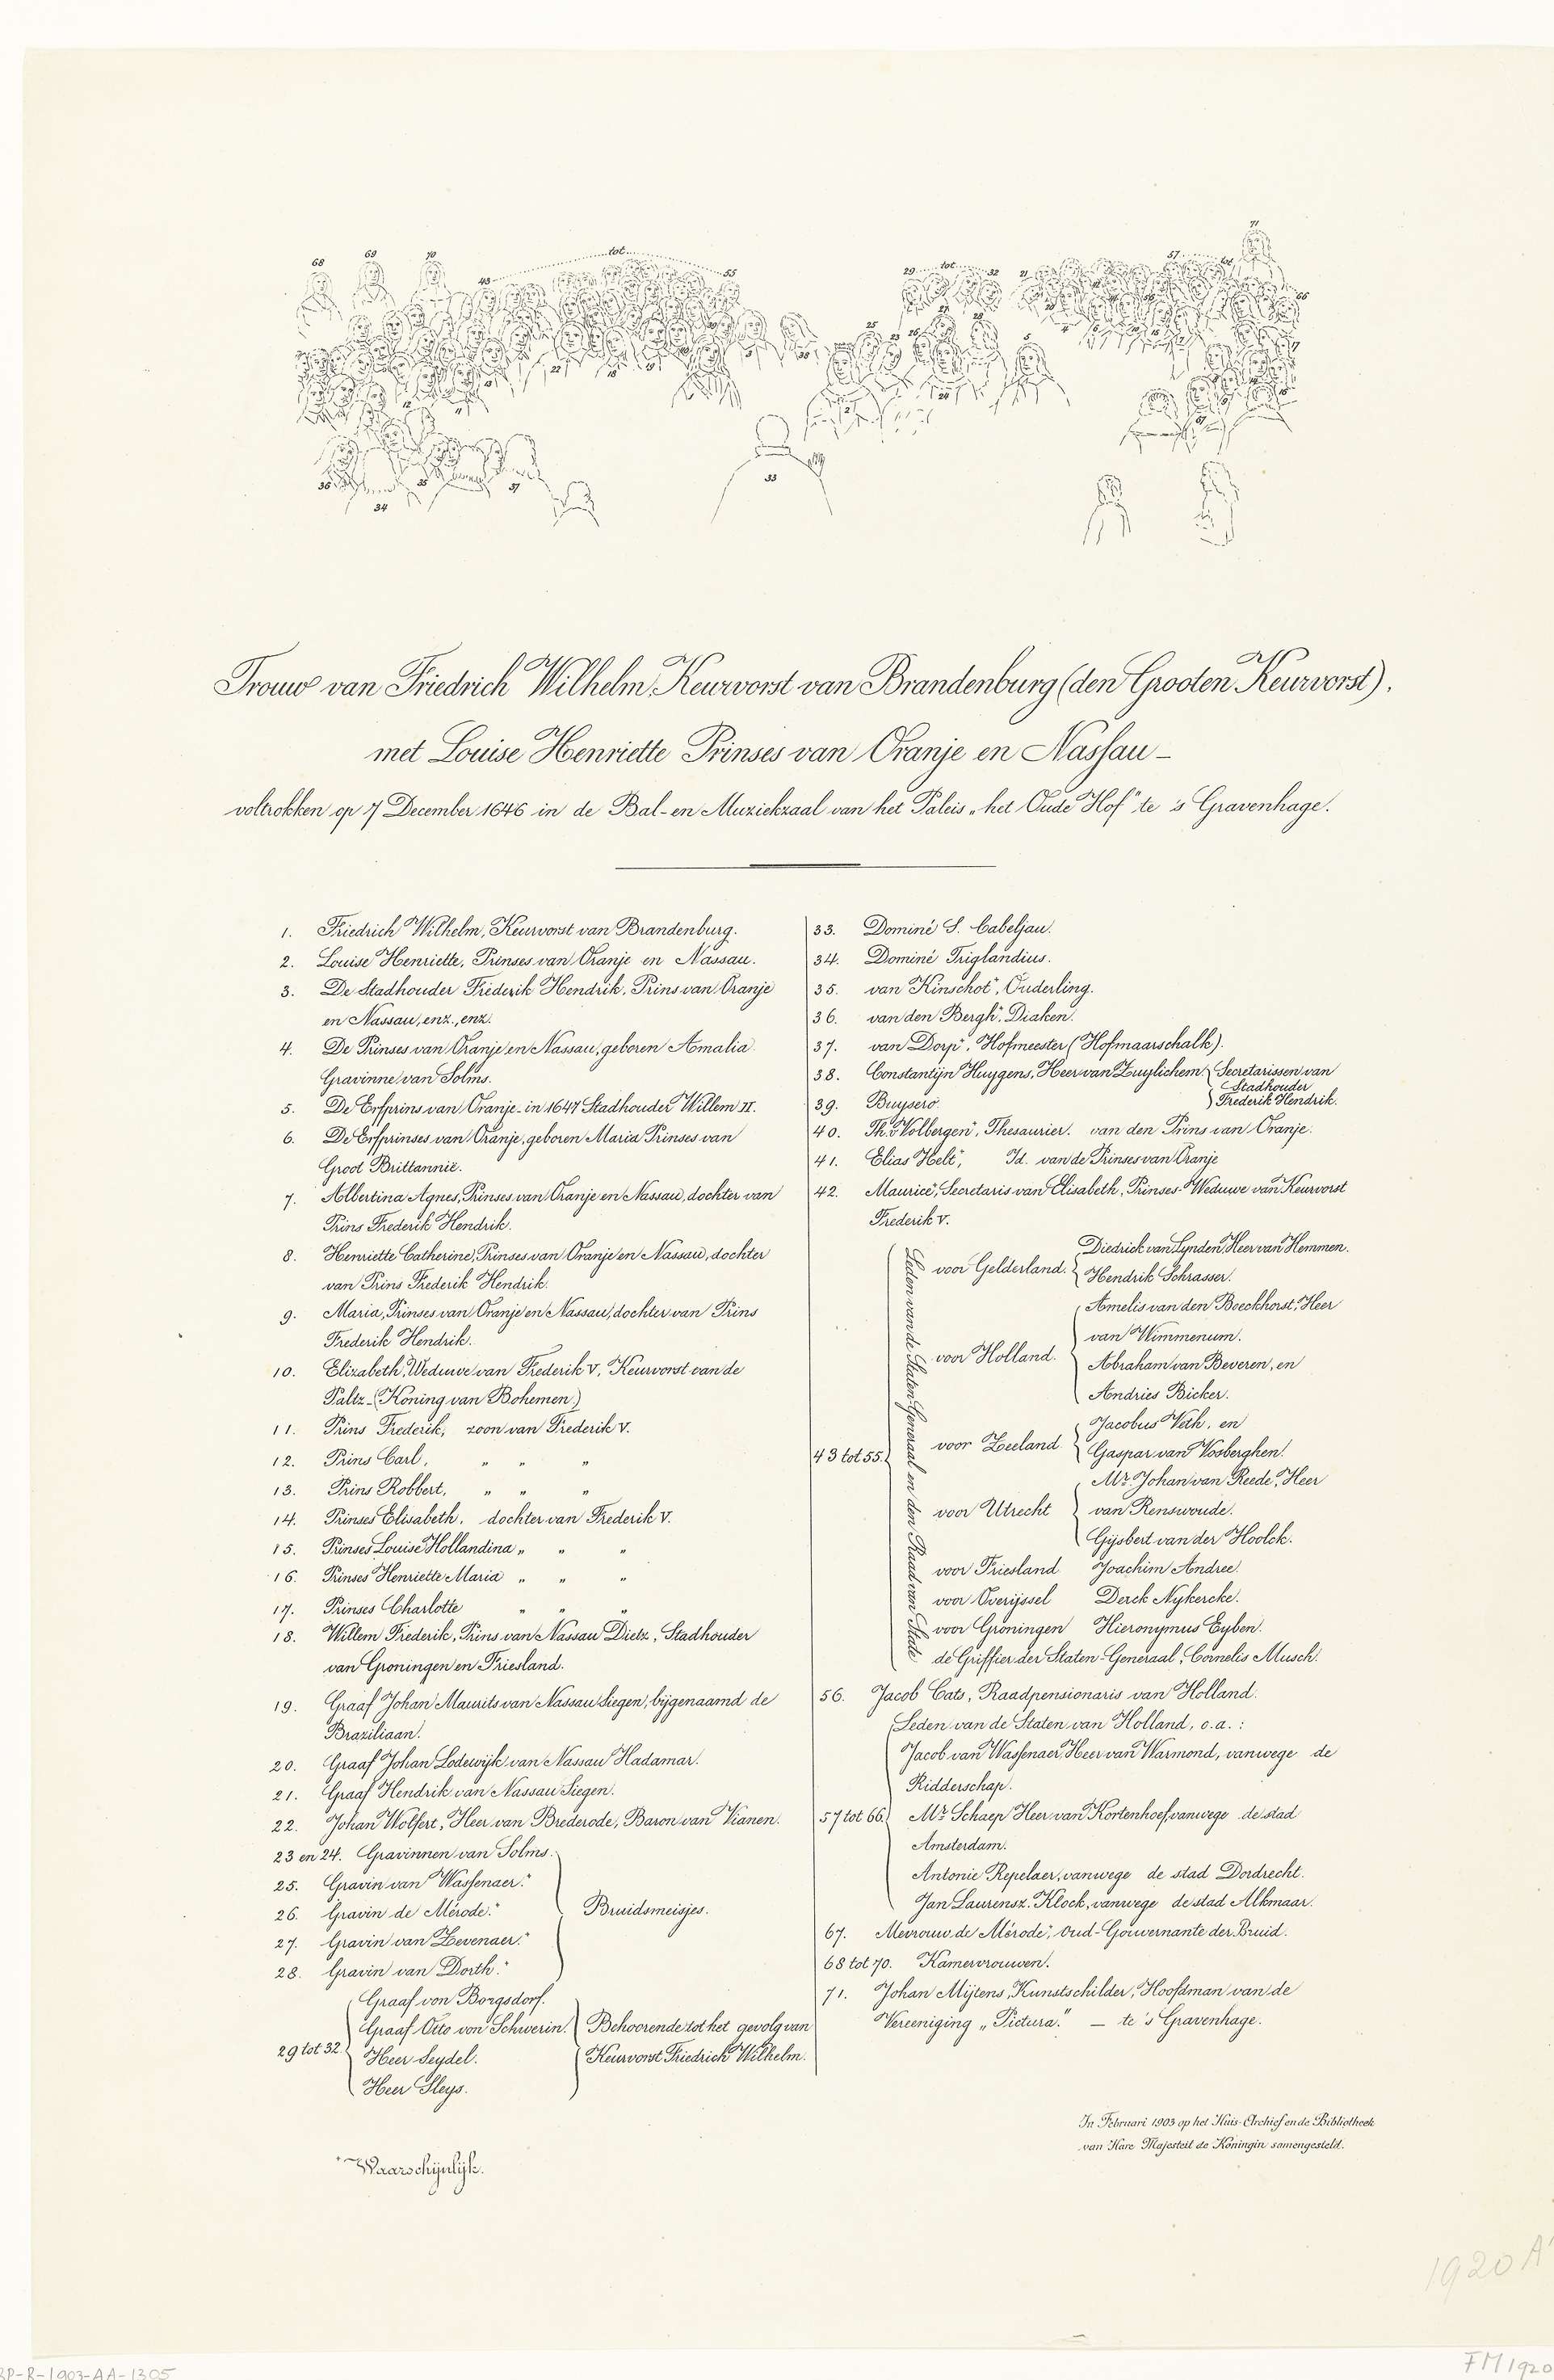 68 69 70 48 tot 55
29 tot 32 21 57 tot 71 66
36 34 35 37 33
Trouw van Friedrich Wilhelm, Keurvorst van Brandenburg (den Grooten Keurvorst),
met Louise Henriette Prinses van Oranje en Nassau –
voltrokken op 7 December 1646 in de Bal- en Muziekzaal van het Paleis „het Oude Hof” te 's Gravenhage.
1. Friedrich Wilhelm, Keurvorst van Brandenburg.
2. Louise Henriette, Prinses van Oranje en Nassau.
3. De Stadhouder Frederik Hendrik, Prins van Oranje
en Nassau, enz., enz.
4. De Prinses van Oranje en Nassau, geboren Amalia
Gravinne van Solms.
5. De Erfprins van Oranje – in 1647 Stadhouder Willem II.
6. De Erfprinses van Oranje, geboren Maria Prinses van
Groot Brittannië.
7. Albertina Agnes, Prinses van Oranje en Nassau, dochter van
Prins Frederik Hendrik.
8. Henriette Catherine, Prinses van Oranje en Nassau, dochter
van Prins Frederik Hendrik.
9. Maria, Prinses van Oranje en Nassau, dochter van Prins
Frederik Hendrik.
10. Elizabeth, Weduwe van Frederik V, Keurvorst van de
Paltz – (Koning van Bohemen)
11. Prins Frederik, zoon van Frederik V.
12. Prins Carl, „ „ „
13. Prins Robbert, „ „ „
14. Prinses Elisabeth, dochter van Frederik V.
15. Prinses Louise Hollandina „ „ „
16. Prinses Henriette Maria „ „ „
17. Prinses Charlotte „ „ „
18. Willem Frederik, Prins van Nassau Dietz, Stadhouder
van Groningen en Friesland.
19. Graaf Johan Maurits van Nassau Siegen, bijgenaamd de
Braziliaan.
20. Graaf Johan Lodewijk van Nassau Hadamar.
21. Graaf Hendrik van Nassau Siegen.
22. Johan Wolfert, Heer van Brederode, Baron van Vianen.
23 en 24. Gravinnen van Solms.
25. Gravin van Wassenaer.*
26. Gravin de Mérode.* Bruidsmeisjes.
27. Gravin van Zevenaer.*
28. Gravin van Dorth.*
29 tot 32. Graaf von Borgsdorf.
Graaf Otto von Schwerin. Behoorende tot het gevolg van
Heer Seydel. Keurvorst Friedrich Wilhelm.
Heer Sleys.
* Waarschijnlijk.
33. Dominé S. Cabeljau.
34. Dominé Triglandius.
35. van Kinschot*, Ouderling.
36. van den Bergh*, Diaken.
37. van Dorp*, Hofmeester (Hofmaarschalk).
38. Constantijn Huygens, Heer van Zuylichem Secretarissen van
Stadhouder
39. Buysero. Frederik Hendrik.
40. Th. v. Volbergen*, Thesaurier. van den Prins van Oranje.
41. Elias Helt*, Id. van de Prinses van Oranje
42. Maurice*, Secretaris van Elisabeth, Prinses-Weduwe van Keurvorst
Frederik V.
43 tot 55. Leden van de Staten-Generaal en den Raad van State
voor Gelderland. Diedrick van Lynden, Heer van Hemmen.
Hendrik Schrasser.
voor Holland. Amelis van den Boeckhorst, Heer
van Wimmenum.
Abraham van Beveren, en
Andries Bicker.
voor Zeeland Jacobus Veth, en
Gaspar van Vosberghen.
voor Utrecht Mr. Johan van Reede, Heer
van Renswoude.
Gijsbert van der Hoolck.
voor Friesland Joachim Andree.
voor Overijssel Derck Nykercke.
voor Groningen Hieronymus Eyben.
de Griffier der Staten-Generaal, Cornelis Musch.
56. Jacob Cats, Raadpensionaris van Holland.
57 tot 66. Leden van de Staten van Holland, o.a.:
Jacob van Wassenaer, Heer van Warmond, vanwege de
Ridderschap.
Mr. Schaep Heer van Kortenhoef, vanwege de stad
Amsterdam.
Antonie Repelaer, vanwege de stad Dordrecht.
Jan Laurensz. Klock, vanwege de stad Alkmaar.
67. Mevrouw de Mérode*, Oud-Gouvernante der Bruid.
68 tot 70. Kamervrouwen.
71. Johan Mijtens, Kunstschilder, Hoofdman van de
Vereeniging „Pictura.” – te 's Gravenhage.
In Februari 1903 op het Huis-Archief en de Bibliotheek
van Hare Majesteit de Koningin samengesteld.
1920 A
RP-R-1903-AA-1305
FM 1920